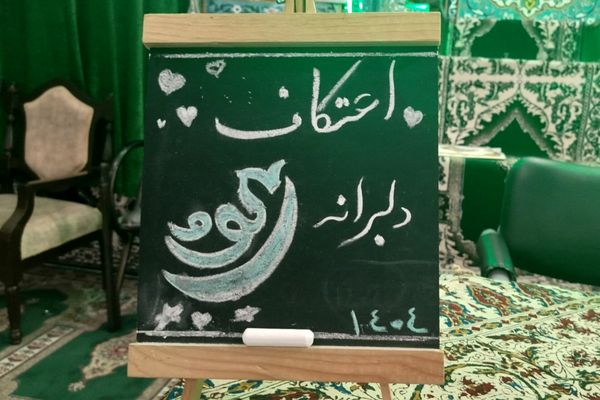 اعتکاف
دلبرانه
۱۴۰۴